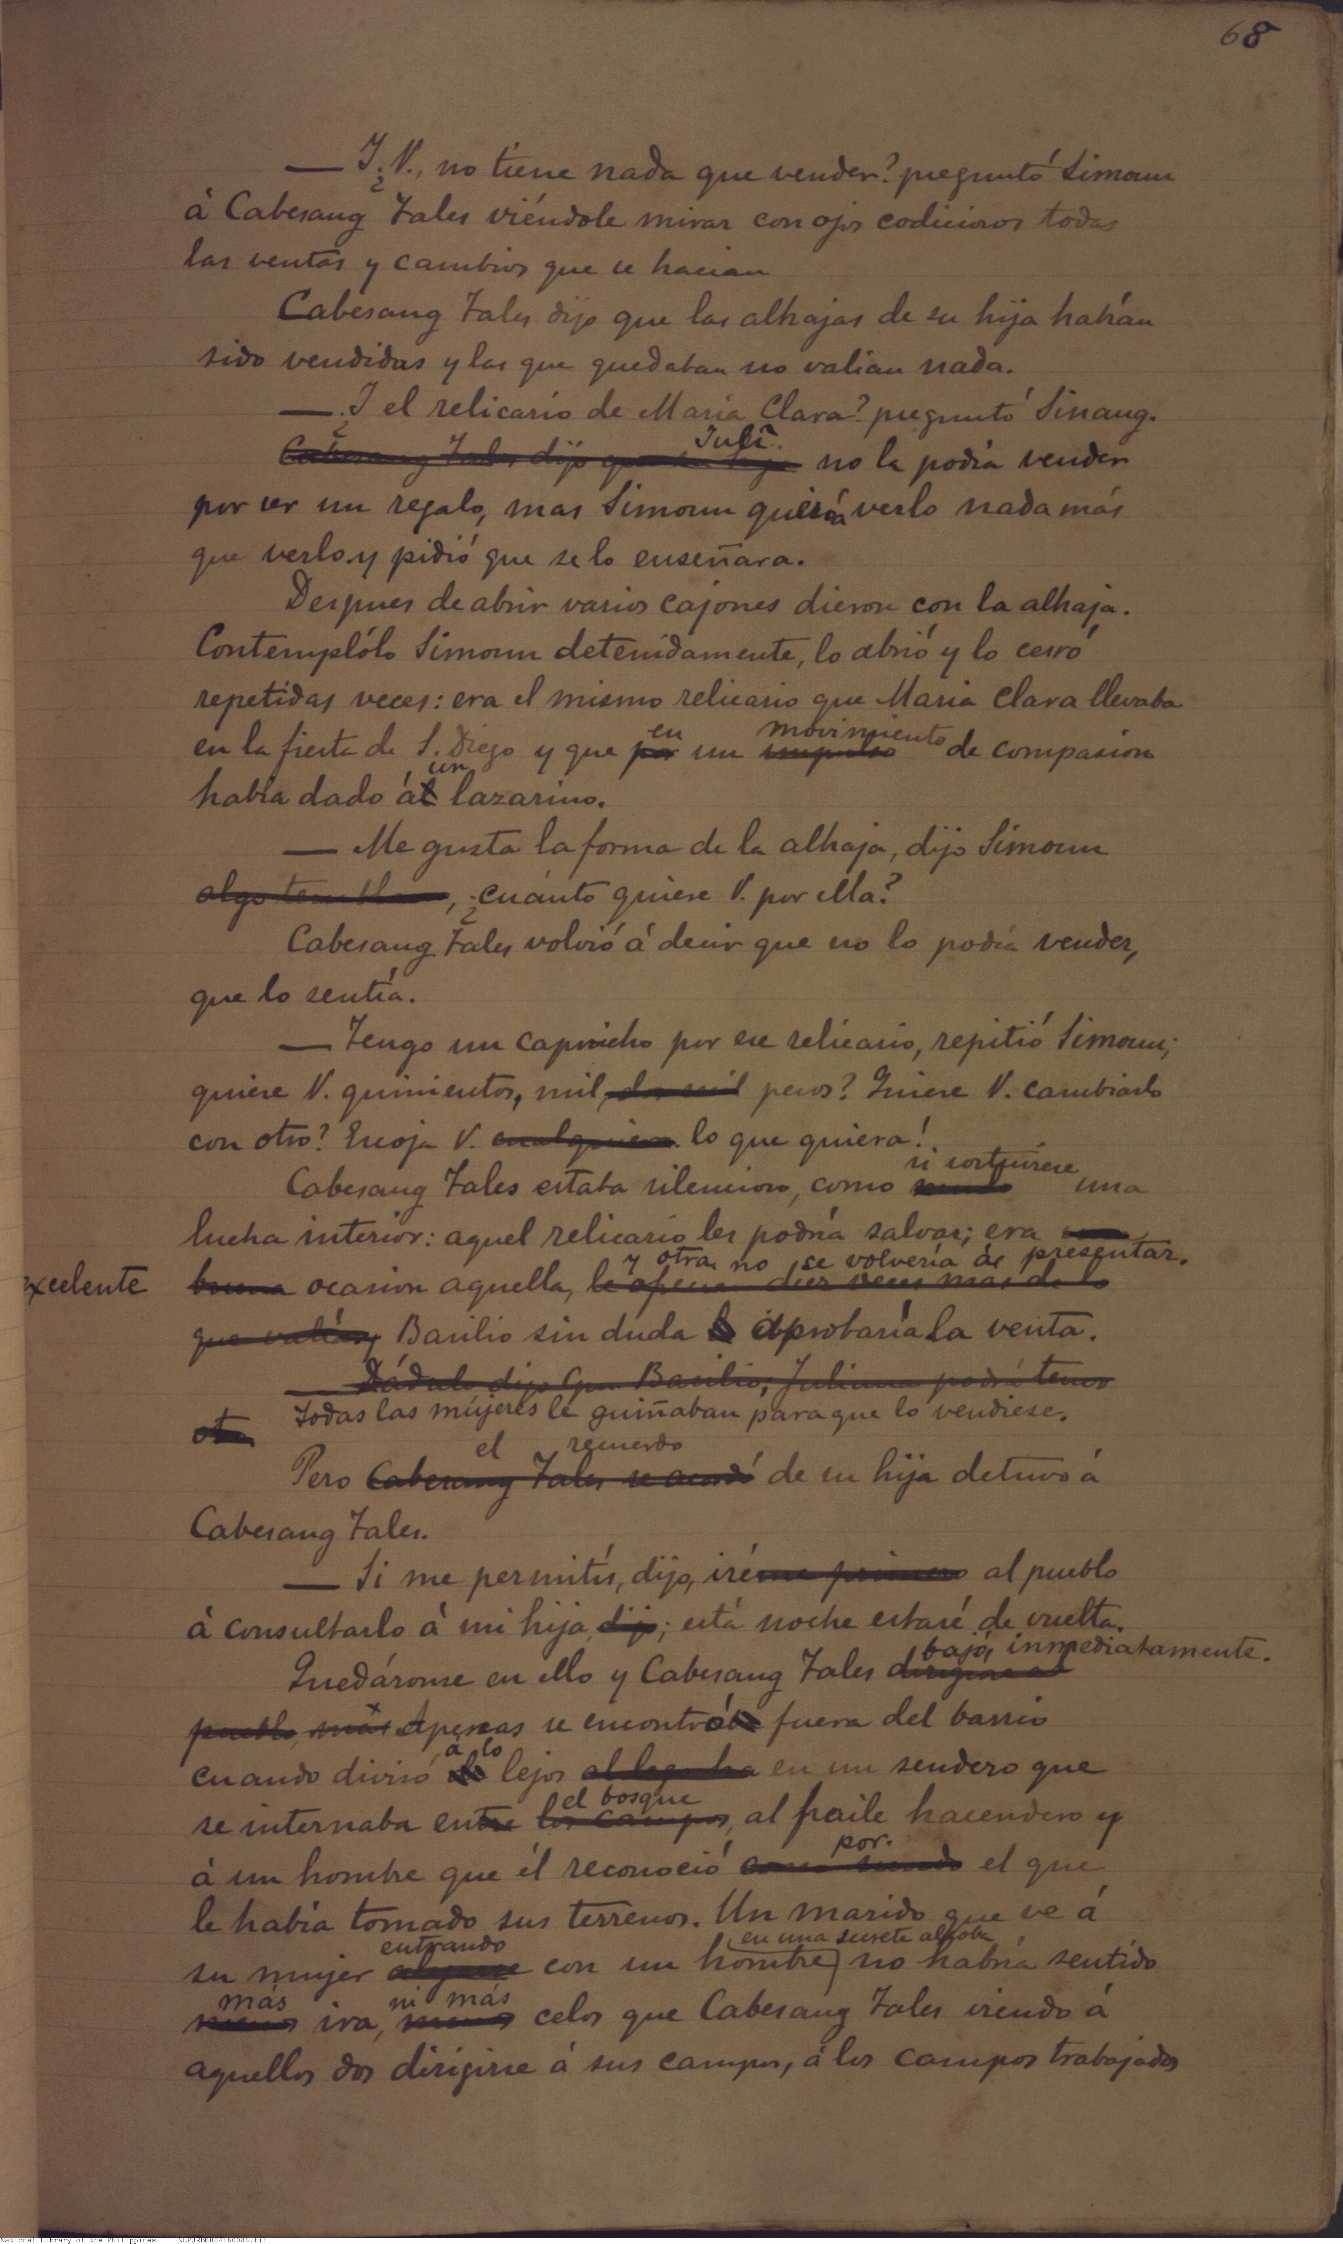 68
— ¿I V., no tiene nada que vender? preguntó Simoun
á Cabesang Tales viéndole mirar con ojos codiciosos todas
las ventas y cambios que se hacian
Cabesang Tales dijo que las alhajas de su hija habían
sido vendidas y las que quedaban no valian nada.
— ¿I el relicario de Maria Clara? preguntó Sinang.
Julî
Cabesang Tales dijo que su hija no la podía vender
por ser un regalo, mas Simoun quería verlo nada más
que verlo y pidió que se lo enseñara.
Despues de abrir varios cajones dieron con la alhaja.
Contemplólo Simoun detenidamente, lo abrió y lo cerró
repetidas veces: era el mismo relicario que Maria Clara llevaba
en movimiento
en la fiesta de S. Diego y que por un impulso de compasion
un
había dado ál lazarino.
— Me gusta la forma de la alhaja, dijo Simoun
algo , ¿cuánto quiere V. por ella?
Cabesang Tales volvió á decir que no lo podía vender,
que lo sentía.
— Tengo un capricho por ese relicario, repitió Simoun;
quiere V. quinientos, mil, dos mil pesos? Quiere V. cambiarlo
con otro? Escoja V. cualquiera lo que quiera!
si sostuviese
Cabesang Tales estaba silencioso, como una
lucha interior: aquel relicario les podría salvar; era una
y otra no se volvería á presentar.
excelente buena ocasion aquella, le ofrecen diez veces mas de lo
que valía, Basilio sin duda aprobaría la venta.
— Dádulo dijo Cpn. Basilio; Juliana podrá tener
Todas las mujeres le guiñaban para que lo vendiese.
otra
el recuerdo
Pero Cabesang Tales se acordó de su hija detuvo á
Cabesang Tales.
— Si me permitís, dijo, iréme primero al pueblo
á consultarlo á mi hija, dijo; está noche estaré de vuelta.
bajó inmediatamente.
Quedáronse en ello y Cabesang Tales dirigióse al
pueblo, más Apenas se encontró fuera del barrio
á lo
cuando divisó lejos al llegaba en un sendero que
el bosque
se internaba entre los campos, al fraile hacendero y
por
á un hombre que él reconoció como siendo el que
le había tomado sus terrenos. Un marido que ve á
entrando en una secreta alcoba
su mujer con un hombre no habría sentido
más ni más
menos ira, menos celos que Cabesang Tales viendo á
aquellos dos dirigirse á sus campos, á los campos trabajados